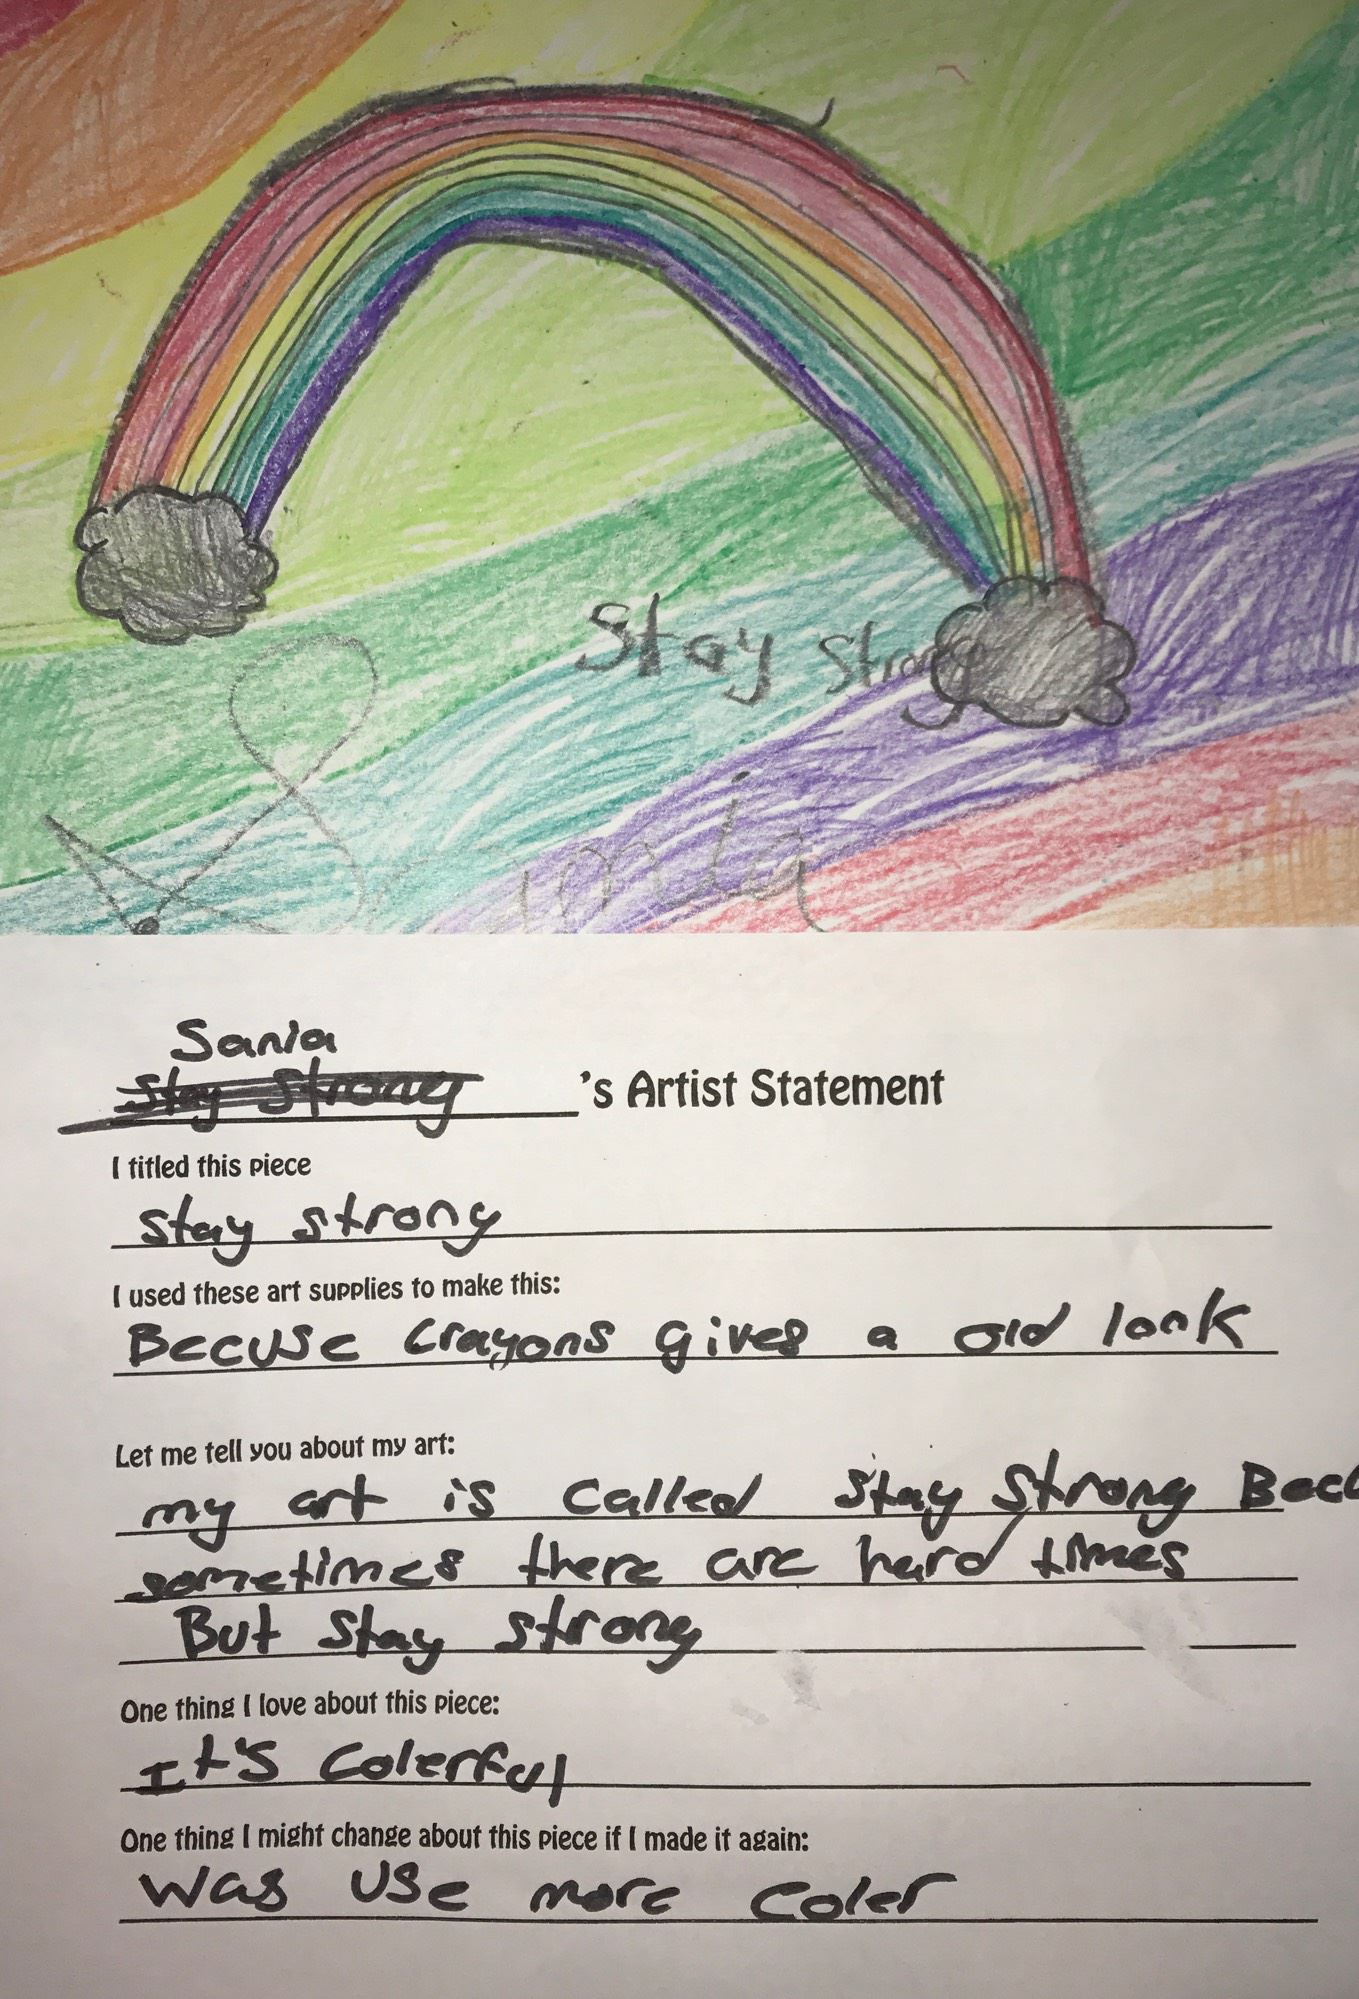 Stay Strong
Sania
Sania
Stay Strong 's Artist Statement
I titled this piece
Stay strong
I used these art supplies to make this:
Becuse crayons gives a old look
Let me tell you about my art:
my art is called Stay Strong Becu
sometimes there are hard times
But stay strong
One thing I love about this piece:
It's Colerful
One thing I might change about this piece if I made it again:
Was use more coler